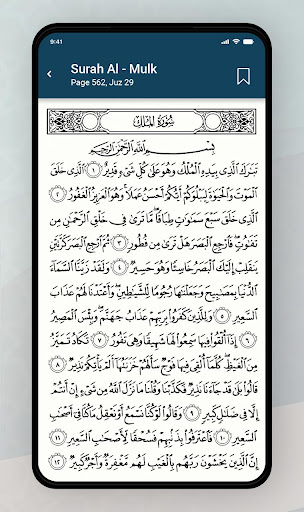 9:41
Surah Al - Mulk
Page 562, Juz 29
سُورَةُ المُلْكِ
بِسْمِ اللَّهِ الرَّحْمَٰنِ الرَّحِيمِ
تَبَارَكَ الَّذِي بِيَدِهِ الْمُلْكُ وَهُوَ عَلَىٰ كُلِّ شَيْءٍ قَدِيرٌ ۝١ الَّذِي خَلَقَ
الْمَوْتَ وَالْحَيَاةَ لِيَبْلُوَكُمْ أَيُّكُمْ أَحْسَنُ عَمَلًا وَهُوَ الْعَزِيزُ الْغَفُورُ
۝٢ الَّذِي خَلَقَ سَبْعَ سَمَاوَاتٍ طِبَاقًا مَّا تَرَىٰ فِي خَلْقِ الرَّحْمَٰنِ مِن
تَفَاوُتٍ فَارْجِعِ الْبَصَرَ هَلْ تَرَىٰ مِن فُطُورٍ ۝٣ ثُمَّ ارْجِعِ الْبَصَرَ كَرَّتَيْنِ
يَنقَلِبْ إِلَيْكَ الْبَصَرُ خَاسِئًا وَهُوَ حَسِيرٌ ۝٤ وَلَقَدْ زَيَّنَّا السَّمَاءَ
الدُّنْيَا بِمَصَابِيحَ وَجَعَلْنَاهَا رُجُومًا لِّلشَّيَاطِينِ وَأَعْتَدْنَا لَهُمْ عَذَابَ
السَّعِيرِ ۝٥ وَلِلَّذِينَ كَفَرُوا بِرَبِّهِمْ عَذَابُ جَهَنَّمَ وَبِئْسَ الْمَصِيرُ
۝٦ إِذَا أُلْقُوا فِيهَا سَمِعُوا لَهَا شَهِيقًا وَهِيَ تَفُورُ ۝٧ تَكَادُ تَمَيَّزُ
مِنَ الْغَيْظِ كُلَّمَا أُلْقِيَ فِيهَا فَوْجٌ سَأَلَهُمْ خَزَنَتُهَا أَلَمْ يَأْتِكُمْ نَذِيرٌ ۝٨
قَالُوا بَلَىٰ قَدْ جَاءَنَا نَذِيرٌ فَكَذَّبْنَا وَقُلْنَا مَا نَزَّلَ اللَّهُ مِن شَيْءٍ إِنْ أَنتُمْ
إِلَّا فِي ضَلَالٍ كَبِيرٍ ۝٩ وَقَالُوا لَوْ كُنَّا نَسْمَعُ أَوْ نَعْقِلُ مَا كُنَّا فِي أَصْحَابِ
السَّعِيرِ ۝١٠ فَاعْتَرَفُوا بِذَنبِهِمْ فَسُحْقًا لِّأَصْحَابِ السَّعِيرِ ۝١١
إِنَّ الَّذِينَ يَخْشَوْنَ رَبَّهُم بِالْغَيْبِ لَهُم مَّغْفِرَةٌ وَأَجْرٌ كَبِيرٌ ۝١٢